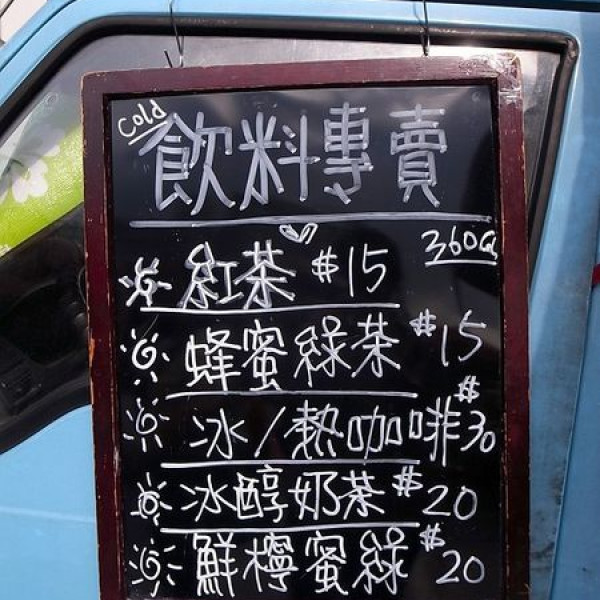 Cold
飲料專賣
360CC
紅茶 #15
蜂蜜綠茶 #15
冰/熱咖啡 #30
冰醇奶茶 #20
鮮檸蜜綠 #20